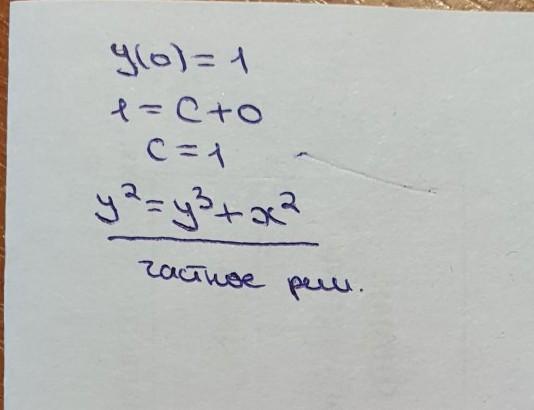 y(0) = 1
1 = C + 0
C = 1
y² = y³ + x²
частное реш.